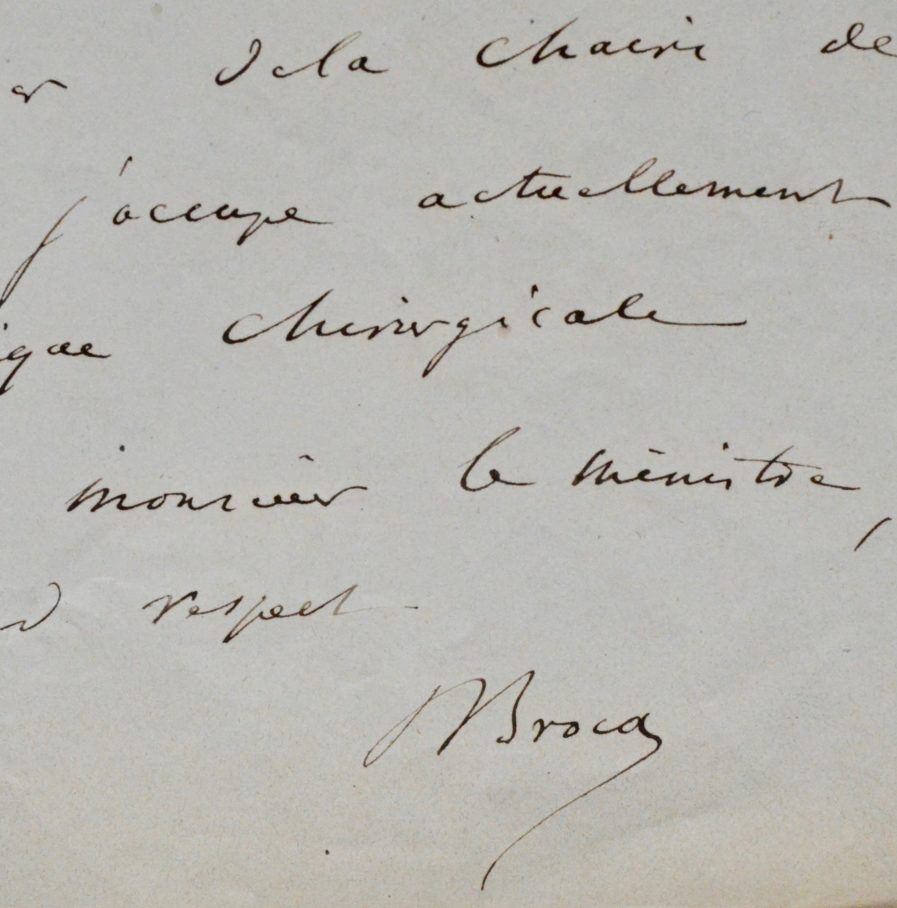 er dela chaire de
j'occupe actuellement
ique chirurgicale
monsieur le ministre,
d respect.
Broca